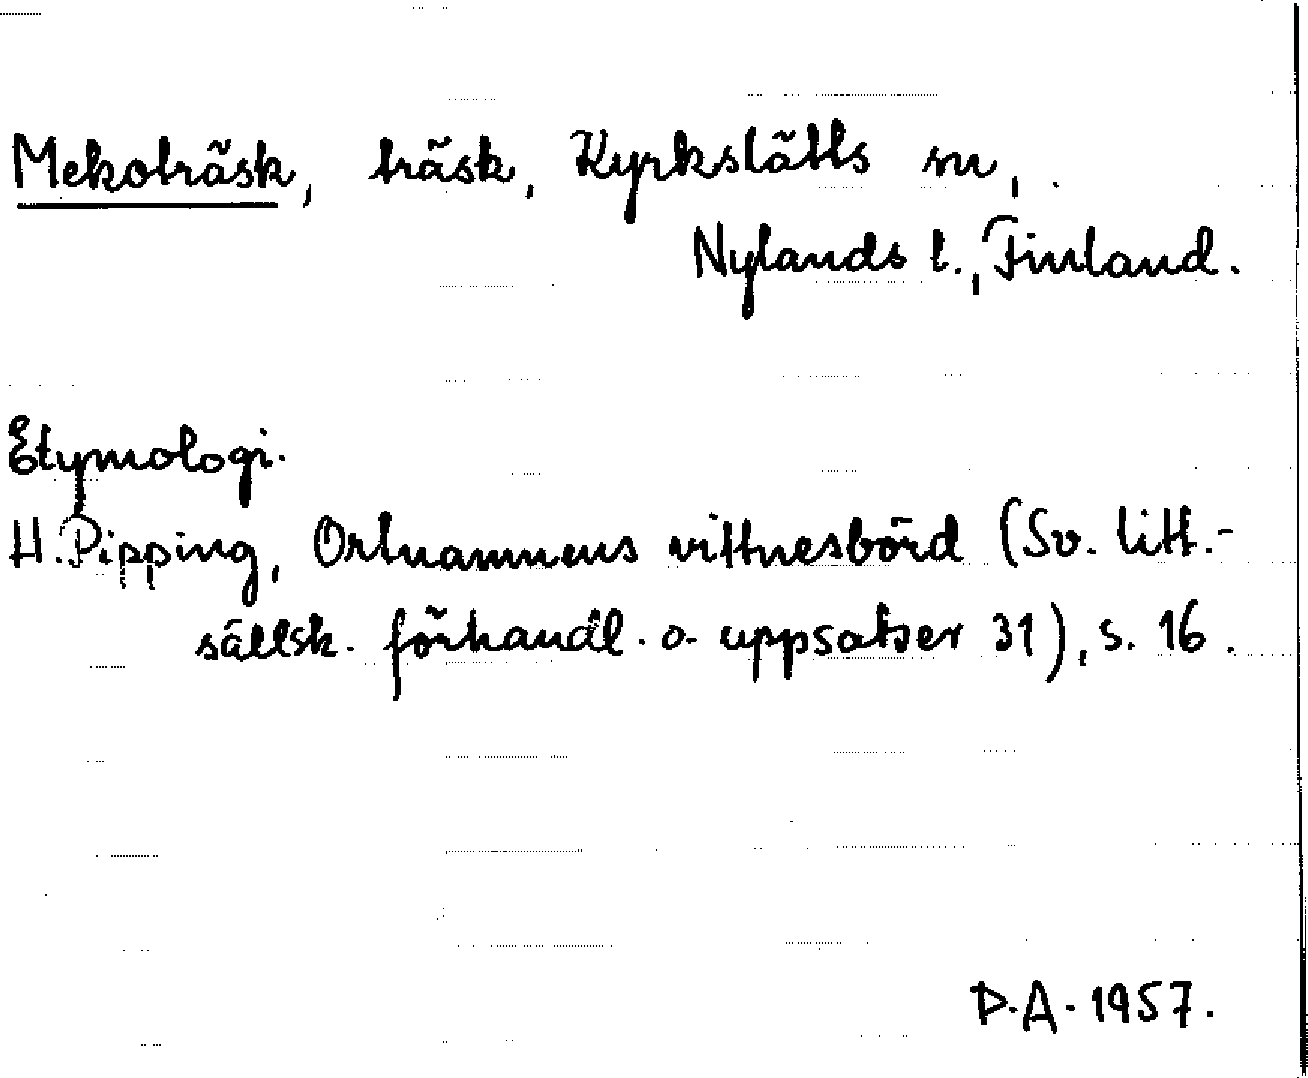 Mekoträsk, träsk, Kyrkslätts sn,
Nylands l., Finland.
Etymologi.
H. Pipping, Ortnamnens vittnesbörd (Sv. litt.-
sällsk. förhandl. o. uppsatser 31), s. 16.
D.A. 1957.